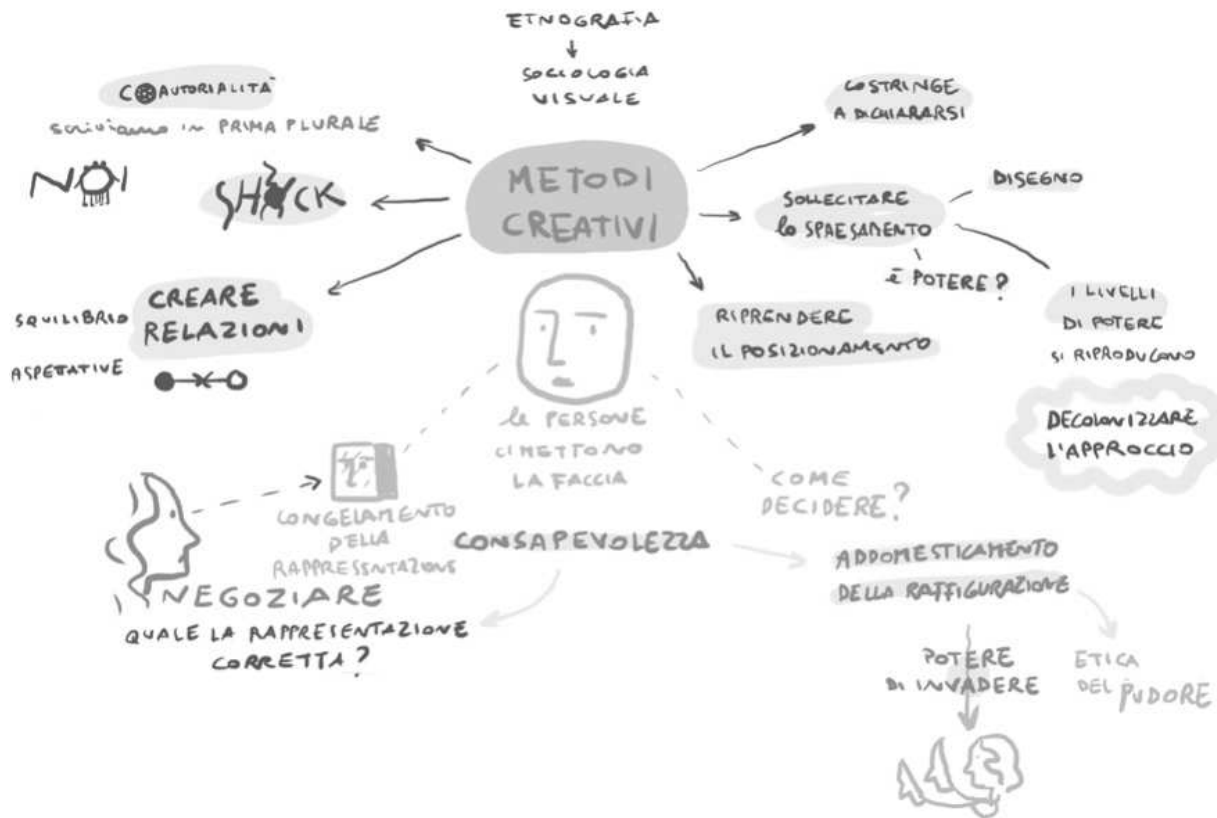 ETNOGRAFIA
SOCIOLOGIA
VISUALE
COAUTORIALITÀ
scriviamo in PRIMA PLURALE
NOI
SHOCK
METODI
CREATIVI
COSTRINGE
A DICHIARARSI
SOLLECITARE
lo SPAESAMENTO
DISEGNO
è POTERE?
I LIVELLI
DI POTERE
SI RIPRODUCONO
DECOLONIZZARE
L'APPROCCIO
SQUILIBRIO
ASPETATIVE
CREARE
RELAZIONI
RIPRENDERE
IL POSIZIONAMENTO
le PERSONE
CI METTONO
LA FACCIA
CONGELAMENTO
DELLA
RAPPRESENTAZIONE
NEGOZIARE
QUALE LA RAPPRESENTAZIONE
CORRETTA?
CONSAPEVOLEZZA
COME
DECIDERE?
ADDOMESTICAMENTO
DELLA RAFFIGURAZIONE
POTERE
DI INVADERE
ETICA
DEL PUDORE